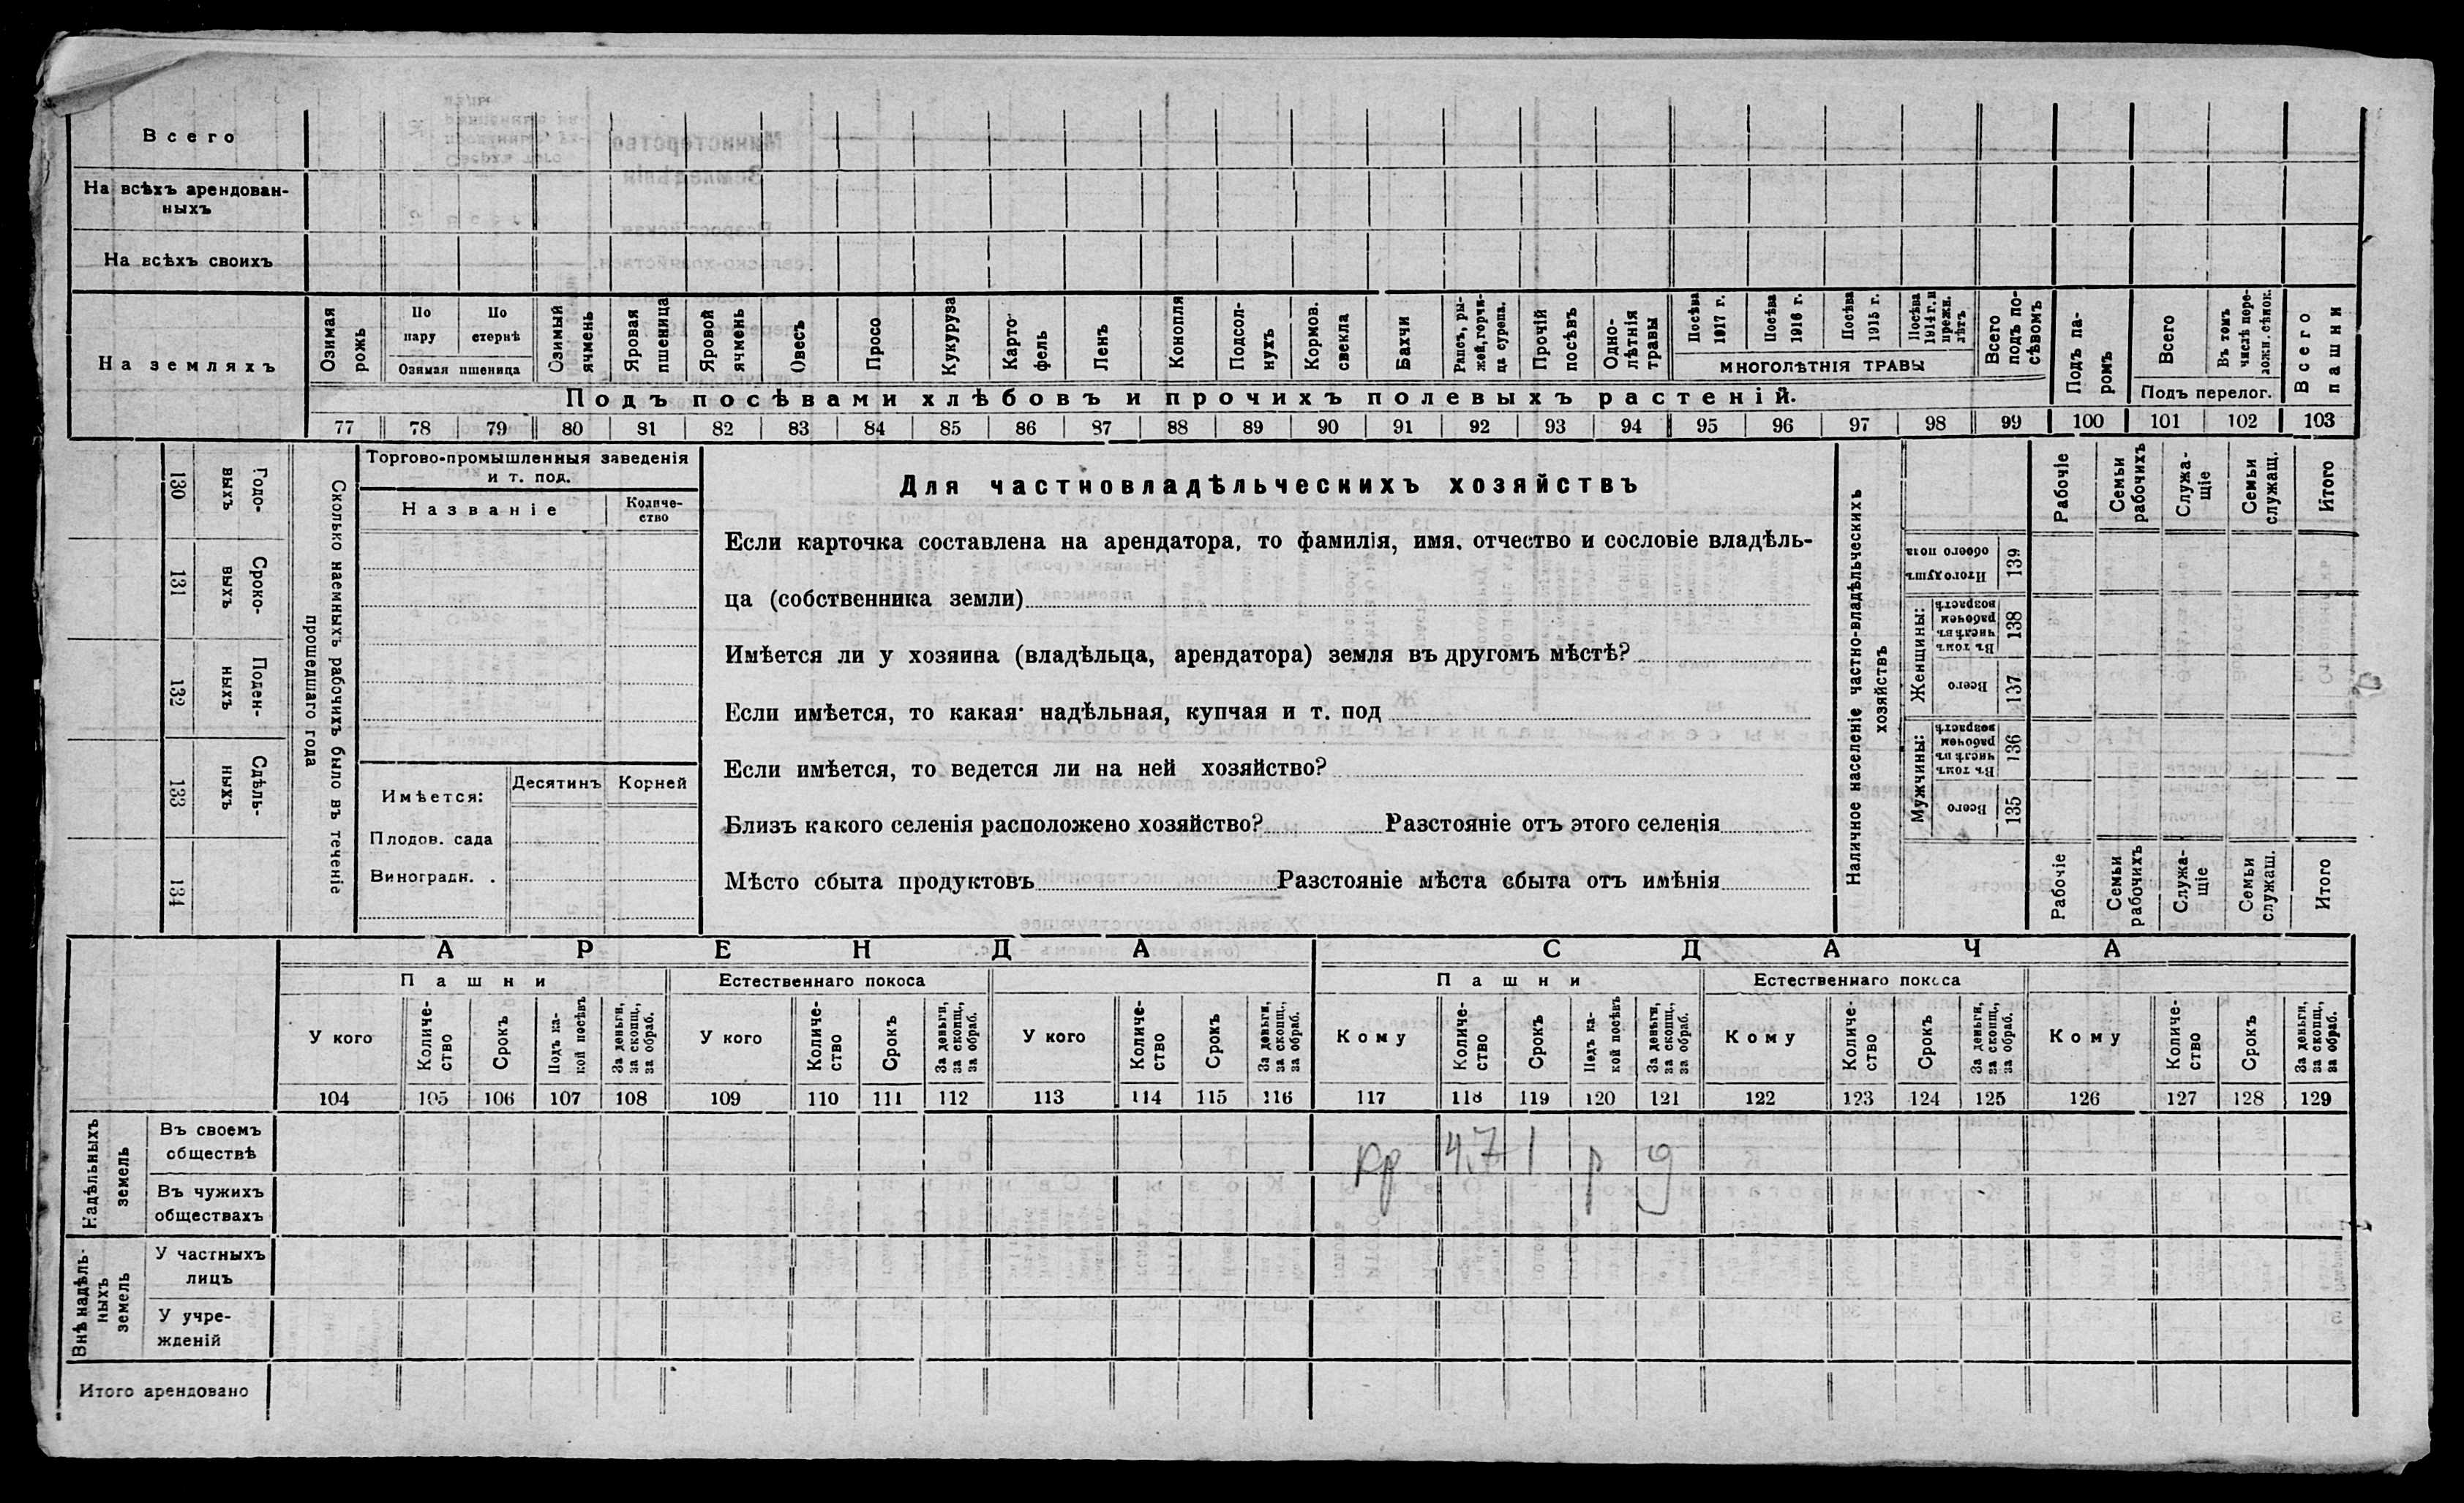 Всего
На всѣхъ арендован-
ныхъ
На всѣхъ своихъ
На земляхъ
Озимая рожь
По пару
По стернѣ
Озимая пшеница
Озимый ячмень
Яровая пшеница
Яровой ячмень
Овесъ
Просо
Кукуруза
Карто-
фель
Ленъ
Конопля
Подсол-
нухъ
Кормов. свекла
Бахчи
Рапсъ, ры-
жей, горчи-
ца сурепа.
Прочій посѣвъ
Одно-
лѣтнія травы
Посѣва 1917 г.
Посѣва 1916 г.
Посѣва 1915 г.
Посѣва 1914 г. и прежн. лѣтъ
МНОГОЛѢТНІЯ ТРАВЫ
Всего подъ по-
сѣвомъ
Подъ па-
ромъ
Всего
Въ томъ числѣ пере-
ложн. сѣнок.
Подъ перелог.
Всего пашни
Подъ посѣвами хлѣбовъ и прочихъ полевыхъ растеній.
77 78 79 80 81 82 83 84 85 86 87 88 89 90 91 92 93 94 95 96 97 98 99 100 101 102 103
130 Годо-
выхъ
131 Сроко-
выхъ
132 Поден-
ныхъ
133 Сдѣль-
ныхъ
134
Сколько наемныхъ рабочихъ было въ теченіе
прошедшаго года
Торгово-промышленныя заведенія
и т. под.
Названіе
Количе-
ство
Имѣется:
Десятинъ Корней
Плодов. сада
Виноградн. .
Для частновладѣльческихъ хозяйствъ
Если карточка составлена на арендатора, то фамилія, имя, отчество и сословіе владѣль-
ца (собственника земли)
Имѣется ли у хозяина (владѣльца, арендатора) земля въ другомъ мѣстѣ?
Если имѣется, то какая: надѣльная, купчая и т. под
Если имѣется, то ведется ли на ней хозяйство?
Близъ какого селенія расположено хозяйство? Разстояніе отъ этого селенія
Мѣсто сбыта продуктовъ Разстояніе мѣста сбыта отъ имѣнія
Наличное населеніе частно-владѣльческихъ
хозяйствъ
Рабочіе
Семьи рабочихъ
Служа-
щіе
Семьи служащ.
Итого
Итого душъ обоего пола 139
Женщины:
Въ томъ числѣ въ рабочемъ возрастѣ 138
Всего 137
Мужчины:
Въ томъ числѣ въ рабочемъ возрастѣ 136
Всего 135
Рабочіе
Семьи рабочихъ
Служа-
щіе
Семьи служащ.
Итого
АРЕНДА
СДАЧА
Пашни
Естественнаго покоса
Пашни
Естественнаго покоса
У кого
Количе-
ство
Срокъ
Подъ ка-
кой посѣвъ
За деньги, за скопщ., за обраб.
У кого
Количе-
ство
Срокъ
За деньги, за скопщ., за обраб.
У кого
Количе-
ство
Срокъ
За деньги, за скопщ., за обраб.
Кому
Количе-
ство
Срокъ
Подъ ка-
кой посѣвъ
За деньги, за скопщ., за обраб.
Кому
Количе-
ство
Срокъ
За деньги, за скопщ., за обраб.
Кому
Количе-
ство
Срокъ
За деньги, за скопщ., за обраб.
104 105 106 107 108 109 110 111 112 113 114 115 116 117 118 119 120 121 122 123 124 125 126 127 128 129
Надѣльныхъ
земель
Въ своемъ
обществѣ
кр 4.7 1 р д
Въ чужихъ
обществахъ
Внѣ надѣль-
ныхъ
земель
У частныхъ
лицъ
У учре-
жденій
Итого арендовано